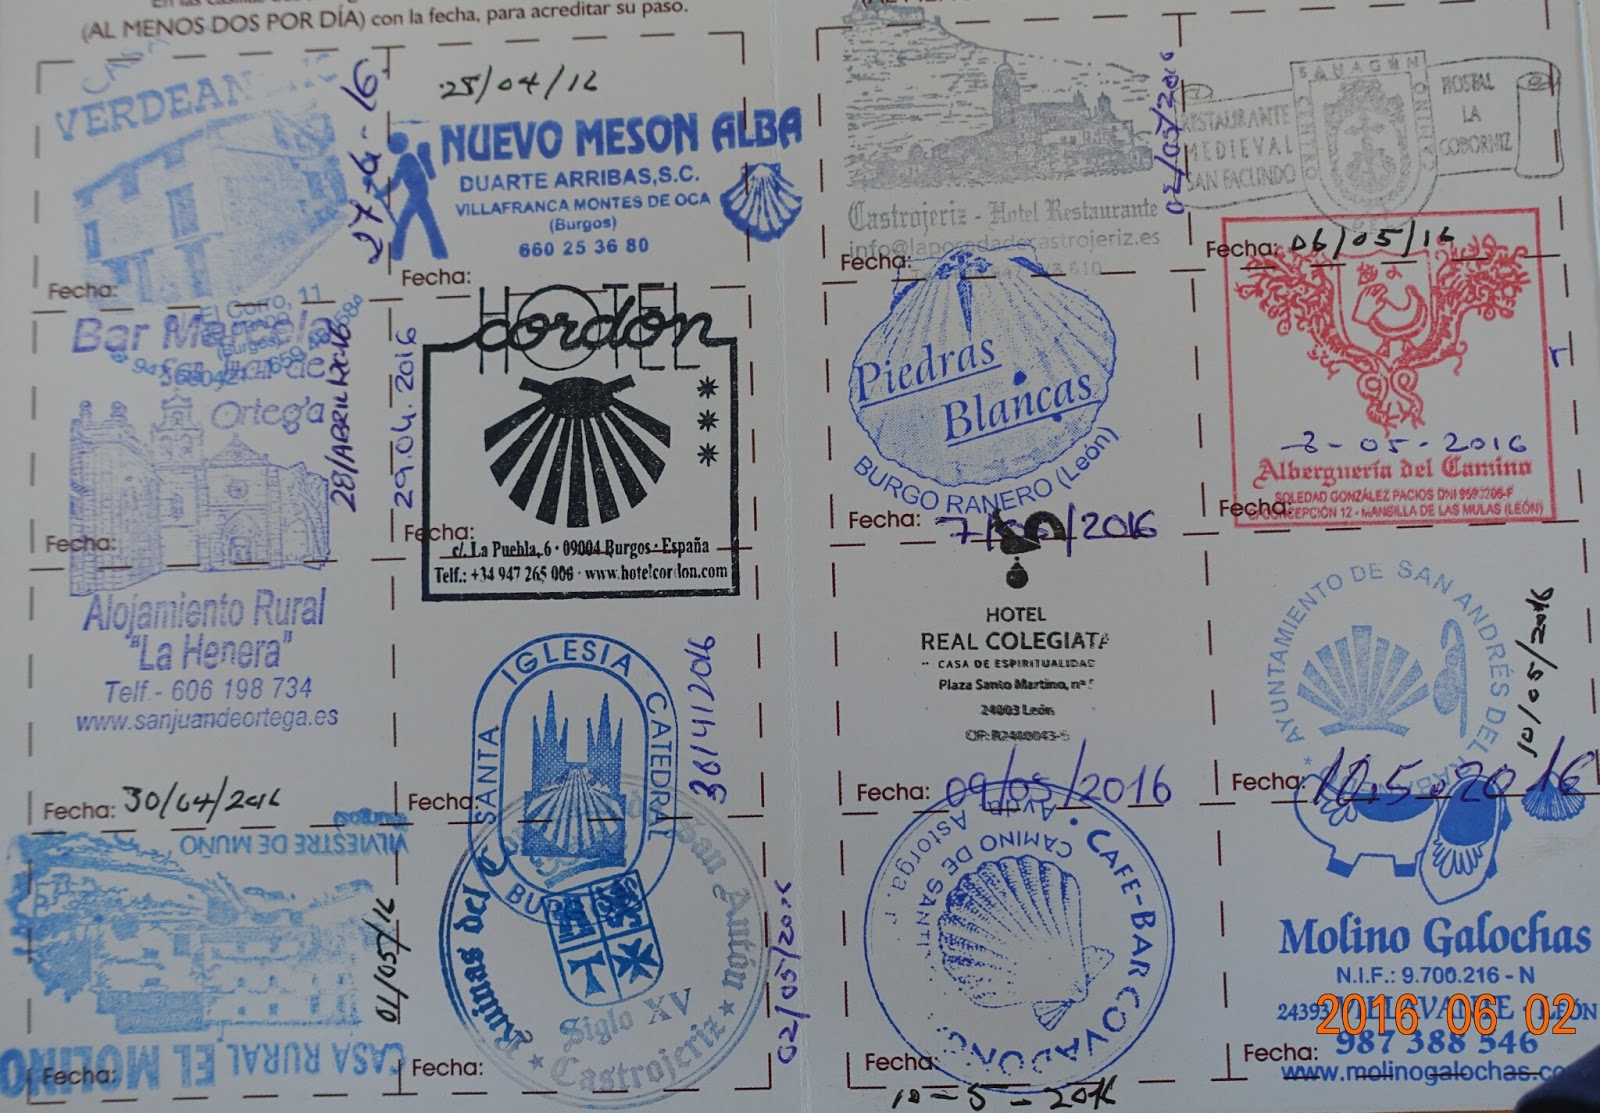 (AL MENOS DOS POR DÍA) con la fecha, para acreditar su paso.
VERDEAN
27-4-16
Fecha:
25/04/16
NUEVO MESON ALBA
DUARTE ARRIBAS,S.C.
VILLAFRANCA MONTES DE OCA
(Burgos)
660 25 36 80
Fecha:
Bar
Ortega
28/ABRIL/2016
Fecha:
Alojamiento Rural
"La Henera"
Telf.- 606 198 734
www.sanjuandeortega.es
Fecha: 30/04/2016
29.04.2016
HOTEL
cordón
Fecha:
c/. La Puebla, 6 · 09004 Burgos · España
Telf.: +34 947 265 000 · www.hotelcordon.com
SANTA IGLESIA CATEDRAL
BURGOS
30/4/2016
Fecha:
VILVIESTRE DE MUÑO
01/05/16
CASA RURAL EL MOLINO
Fecha:
Ruinas del Convento de San Antón
Siglo XV
Castrojeriz
02/05/2016
Fecha:
02/05/2016
Castrojeriz - Hotel Restaurante
info@laposadadecastrojeriz.es
Fecha:
SAHAGÚN
CENTRO
RESTAURANTE
MEDIEVAL
SAN FACUNDO
HOSTAL
LA
CODORNIZ
Fecha: 06/05/16
Piedras
Blancas
BURGO RANERO (León)
Fecha: 7/05/2016
8-05-2016
Alberguería del Camino
SOLEDAD GONZÁLEZ PACIOS DNI
C/ CONCEPCIÓN 12 - MANSILLA DE LAS MULAS (LEÓN)
Fecha:
HOTEL
REAL COLEGIATA
CASA DE ESPIRITUALIDAD
Plaza Santo Martino, nº
24003 León
Fecha: 09/05/2016
AYUNTAMIENTO DE SAN ANDRÉS DEL
10/05/2016
Fecha: 10.5.2016
CAFE-BAR COVADONGA
CAMINO DE SANTI
Astorga.
Fecha:
10-5-2016
Molino Galochas
N.I.F.: 9.700.216 - N
24393 VILLAVANTE - LEÓN
Fecha: 987 388 546
www.molinogalochas.co
2016 06 02